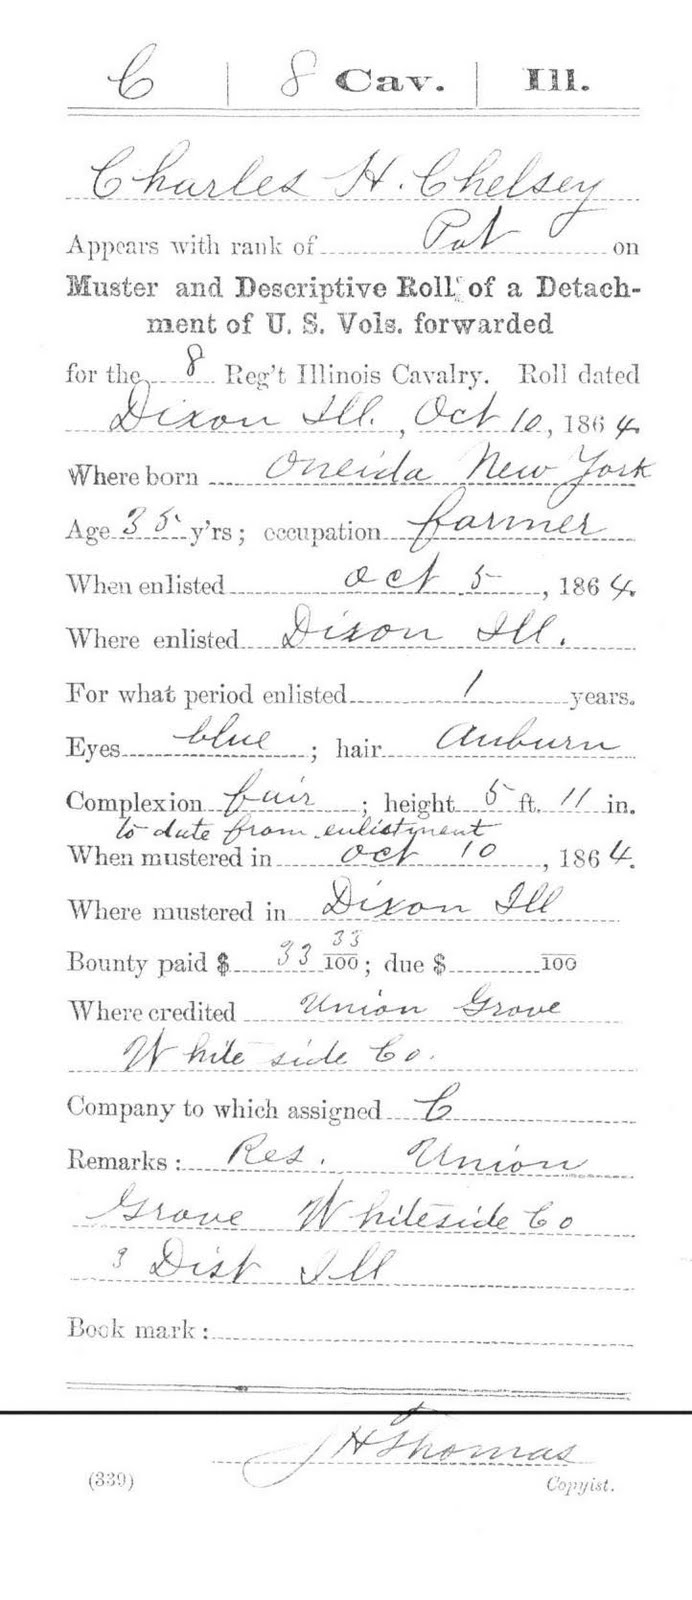 C | 8 Cav. | Ill.
Charles H. Chelsey
Appears with rank of Pvt on
Muster and Descriptive Roll of a Detach-
ment of U. S. Vols. forwarded
for the 8 Reg't Illinois Cavalry. Roll dated
Dixon Ill., Oct 10, 1864.
Where born Oneida New York
Age 35 y'rs; occupation farmer
When enlisted Oct 5, 1864.
Where enlisted Dixon Ill.
For what period enlisted 1 years.
Eyes blue; hair Auburn
Complexion fair; height 5 ft. 11 in.
to date from enlistment
When mustered in Oct 10, 1864.
Where mustered in Dixon Ill
Bounty paid $ 33 33/100; due $ /100
Where credited Union Grove
White side Co.
Company to which assigned C
Remarks: Res. Union
Grove Whiteside Co
3 Dist Ill
Book mark:
J H Thomas
(339) Copyist.